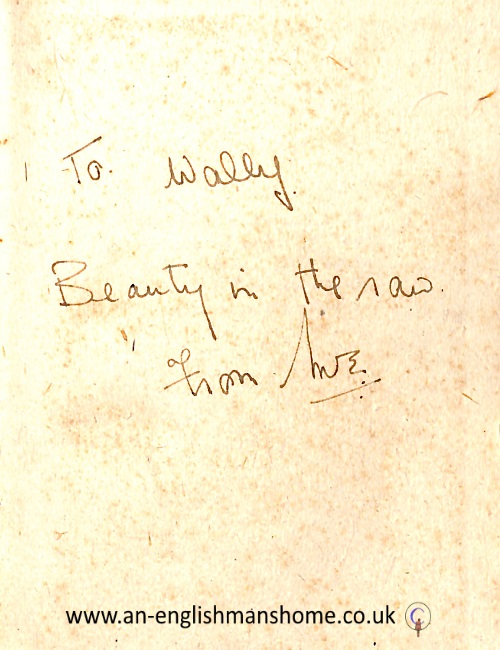 To. Wally.
Beauty in the raw.
From Me.
www.an-englishmanshome.co.uk ©